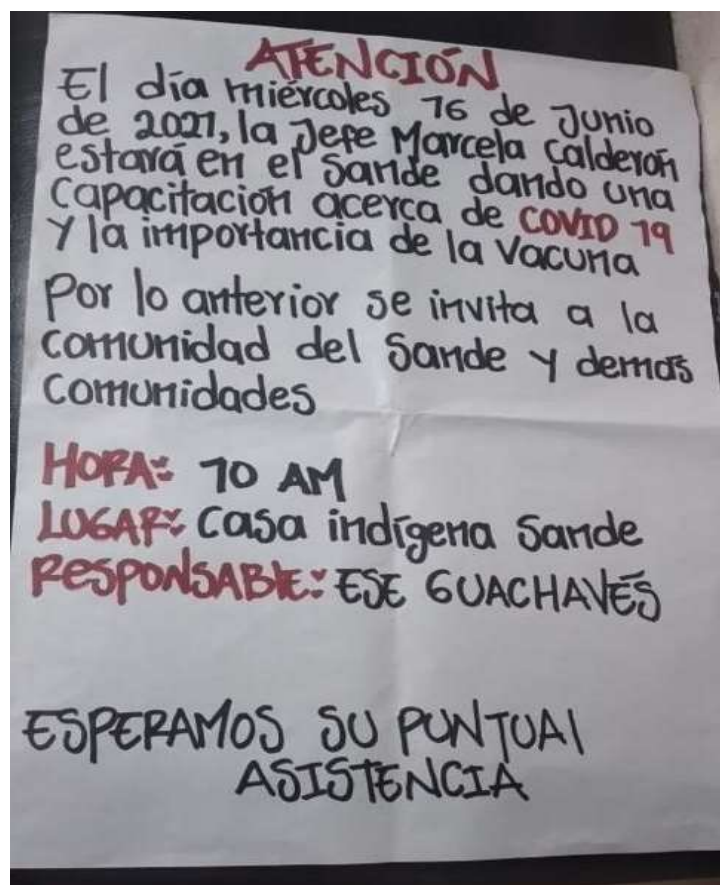 ATENCIÓN
El día miércoles 16 de Junio
de 2021, la Jefe Marcela Calderón
estará en el Sande dando una
capacitación acerca de COVID 19
y la importancia de la vacuna
Por lo anterior se invita a la
comunidad del Sande y demás
comunidades
HORA: 10 AM
LUGAR: Casa indígena Sande
RESPONSABLE: ESE GUACHAVÉS
ESPERAMOS SU PUNTUAl
ASISTENCIA